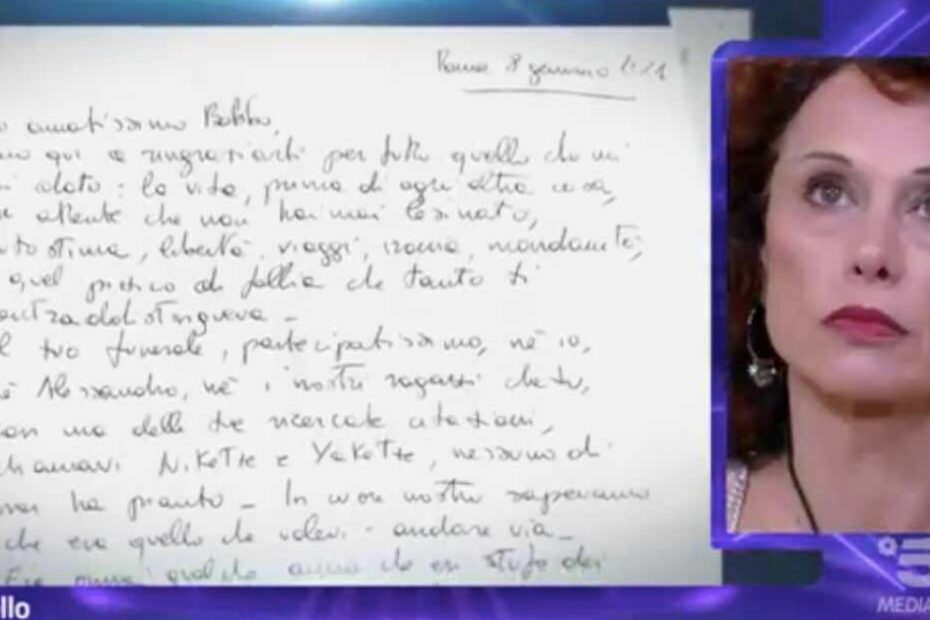 Roma 8 gennaio 2021
o amatissimo Babbo,
mo qui a ringraziarti per tutto quello che mi
i dato: la vita, prima di ogni altra cosa,
e attente che non hai mai lesinato,
tostima, libertà, viaggi, ironia, mondanità,
quel pizzico di follia che tanto ti
contraddistingueva -
l tuo funerale, partecipatissimo, nè io,
è Alessandro, nè i nostri ragazzi che tu,
con una delle tue ricercate citazioni,
chiamavi NiKette e YaKette, nessuno di
noi ha pianto - In cuor nostro sapevamo
che era quello che volevi - andare via -
Era ormai qualche anno che eri stufo dei
llo
5
MEDIA